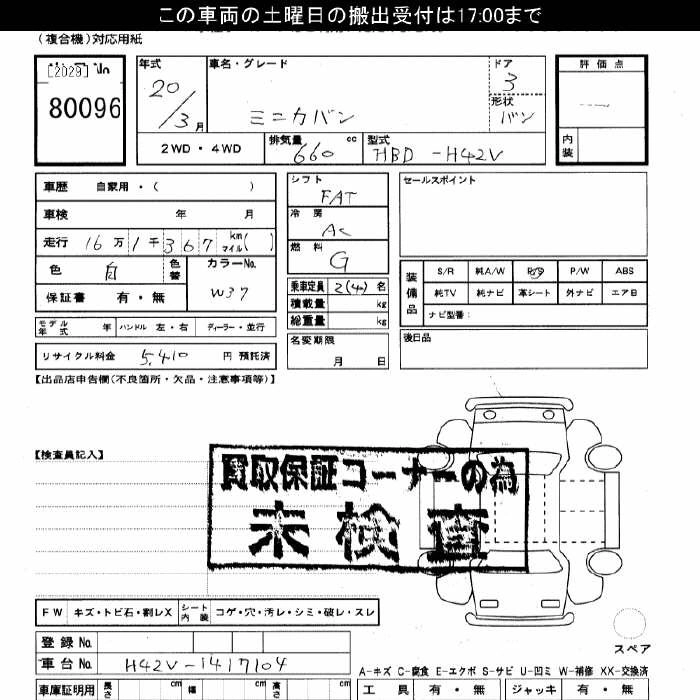 この車両の土曜日の搬出受付は17:00まで
(複合機)対応用紙
[2029]
80096
年式 20/3月
車名・グレード ミニカバン
ドア 3
形状 バン
評価点
内装
2WD・4WD
排気量 660 cc
型式 HBD-H42V
車歴 自家用・( )
車検 年 月
走行 16万1千367 km マイル( )
色 白 色替
カラーNo. W37
保証書 有・無
モデル年式 年 ハンドル 左・右 ディーラー・並行
リサイクル料金 5,410 円 預託済
シフト FAT
冷房 AC
燃料 G
乗車定員 2(4)名
積載量 kg
総重量 kg
名変期限 月 日
セールスポイント
装備品
S/R 純A/W P/S P/W ABS
純TV 純ナビ 革シート 外ナビ エアB
ナビ型番:
後日品
【出品店申告欄(不良箇所・欠品・注意事項等)】
【検査員記入】
買取保証コーナーの為
未検査
FW キズ・トビ石・割レX シート内装 コゲ・穴・汚レ・シミ・破レ・スレ
スペア
登録No.
車台No. H42V-1417104
A-キズ C-腐食 E-エクボ S-サビ U-凹ミ W-補修 XX-交換済
車庫証明用 長さ cm 幅 cm 高さ cm
工具 有・無 ジャッキ 有・無